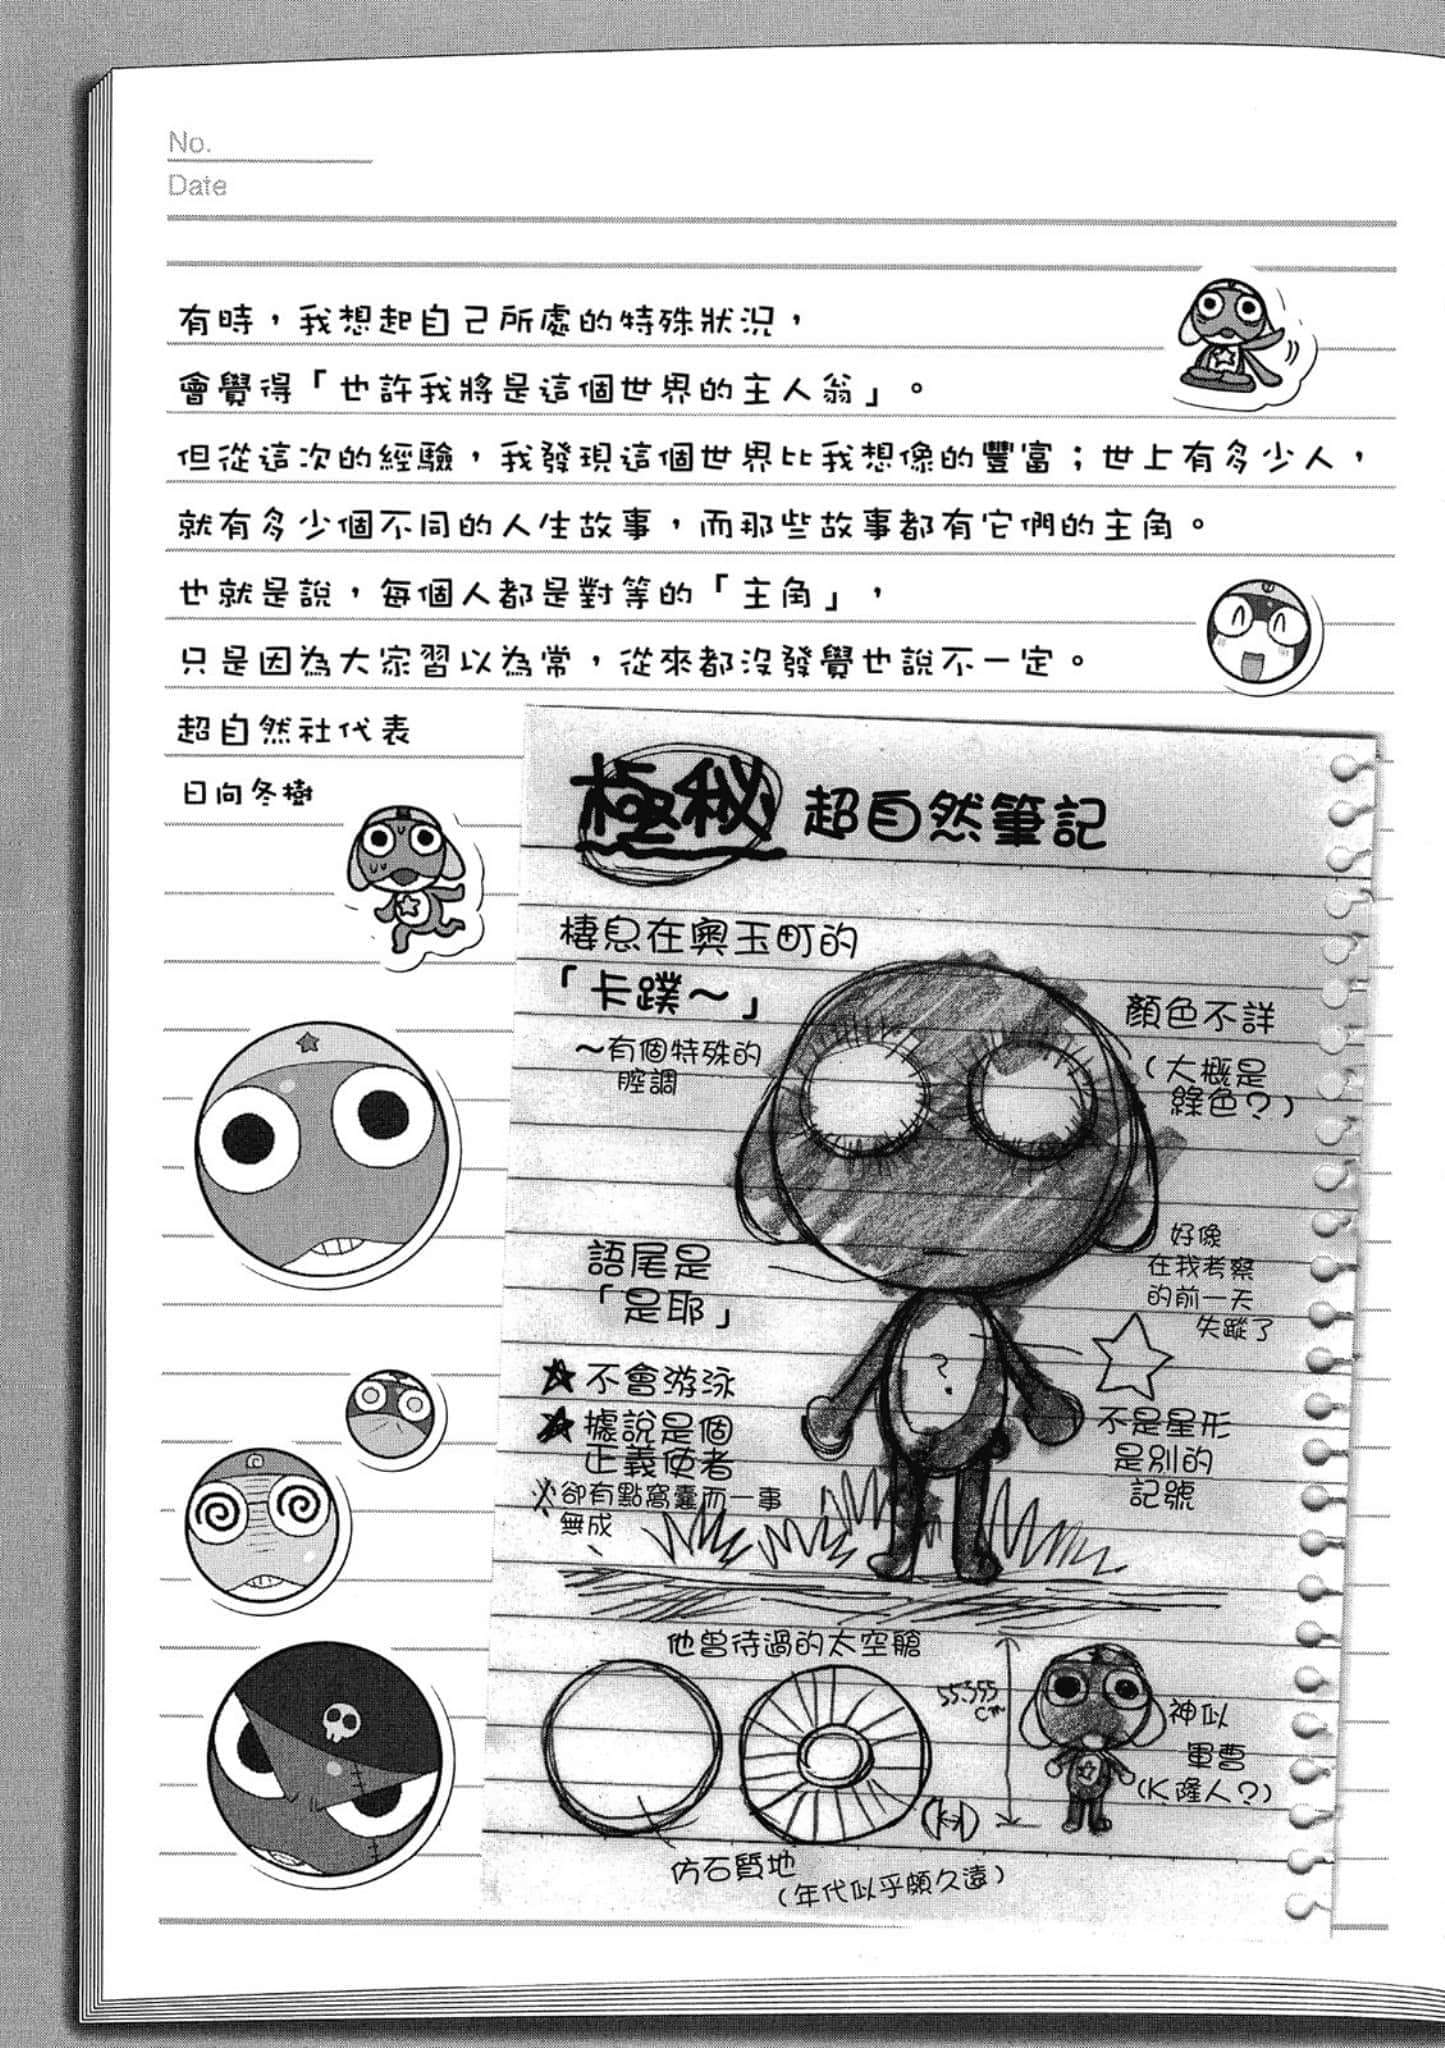 No.
Date
有時，我想起自己所處的特殊狀況，
會覺得「也許我將是這個世界的主人翁」。
但從這次的經驗，我發現這個世界比我想像的豐富；世上有多少人，
就有多少個不同的人生故事，而那些故事都有它們的主角。
也就是說，每個人都是對等的「主角」，
只是因為大家習以為常，從來都沒發覺也說不一定。
超自然社代表
日向冬樹
極秘 超自然筆記
棲息在奧玉町的
「卡蹼～」
～有個特殊的
腔調
顏色不詳
(大概是
綠色?)
語尾是
「是耶」
好像
在我考察
的前一天
失蹤了
☆不會游泳
☆據說是個
正義使者
※卻有點窩囊而一事
無成
?
不是星形
是別的
記號
他曾待過的太空艙
55.555
cm
神似
軍曹
(K隆人?)
仿石質地
(年代似乎頗久遠)